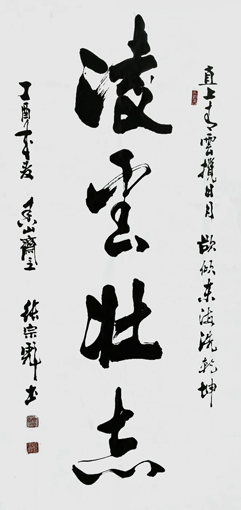 直上青雲攬日月 欲傾東海洗乾坤
凌雲壯志
丁酉年春 香山齋主 張宗彪書